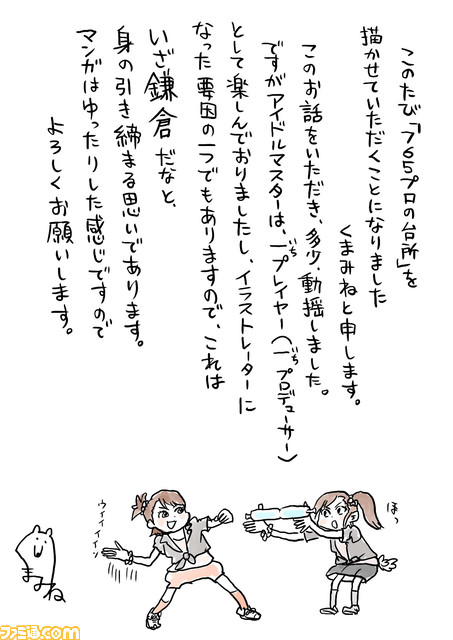 このたび「765プロの台所」を
描かせていただくことになりました
くまみねと申します。
このお話をいただき、多少、動揺しました。
ですがアイドルマスターは、一プレイヤー(一プロデューサー)
いち
いち
として楽しんでおりましたし、イラストレーターに
なった要因の一つでもありますので、これは
いざ鎌倉だなと、
身の引き締まる思いであります。
マンガはゆったりした感じですので
よろしくお願いします。
ウィィィーン
ほっ
まみね
ファミ通.com